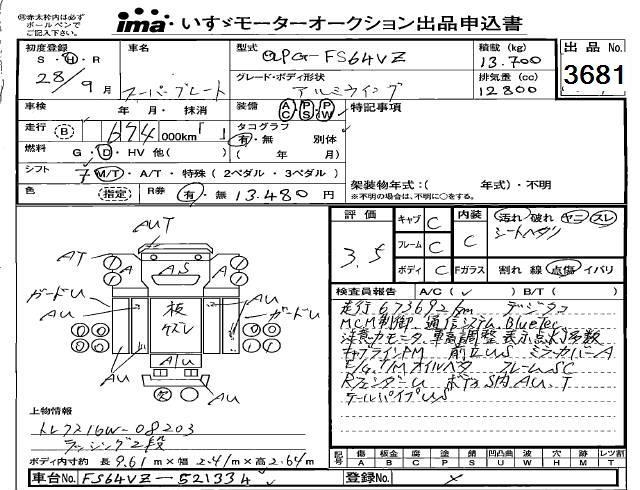 ㊟赤太枠内は必ず
ボールペンで
ご記入下さい。
ima いすゞモーターオークション出品申込書
初度登録 S・H・R 28/9月
車名 スーパーグレート
型式 QPG-FS64VZ
積載 (kg) 13.700
出品 No. 3681
グレード・ボディ形状 アルミウイング
排気量 (cc) 12800
車検 年・月・抹消
装備 AC PS PW
特記事項
走行 (B) 674 000km
タコグラフ 有・無 別体 ( 年 月)
燃料 G・D・HV 他( )
シフト 7 M/T・A/T・特殊 (2ペダル・3ペダル)
架装物年式：( 年式)・不明
※不明の場合は、不明に○をする。
色 (指定)
R券 有・無 13.480 円
評価 3.5
キャブ C
フレーム C
ボディ C
内装 C
Fガラス
汚れ 破れ ヤニ スレ
シートヘタリ
割れ 線 点傷 イバリ
検査員報告 A/C(✓) B/T( )
走行673692km デジタコ
MCM制御.通信システム.BlueTec
注意力モニタ.車高調整 表示点灯多数
キャブライトDM 前立US ミラーカバーA
E/G.T/Mオイルベタ フレームSC
RフェンダーU ボディS内.AU.T
テールパイプUS
AUT
AT
A
AS
A
ガードU
AU
板
ケズレ
AU
ガードU
AU
AU
AU
AU
上物情報
トレクス16W-08203
ラッシング2段
ボディ内寸約 長9.61m×幅2.41m×高2.64m
記号 傷 板金 腐 塗 錆 凹凸曲 波 穴 跡 レツ割
A B C P S U W H M T
車台No. FS64VZ-521334
登録No.